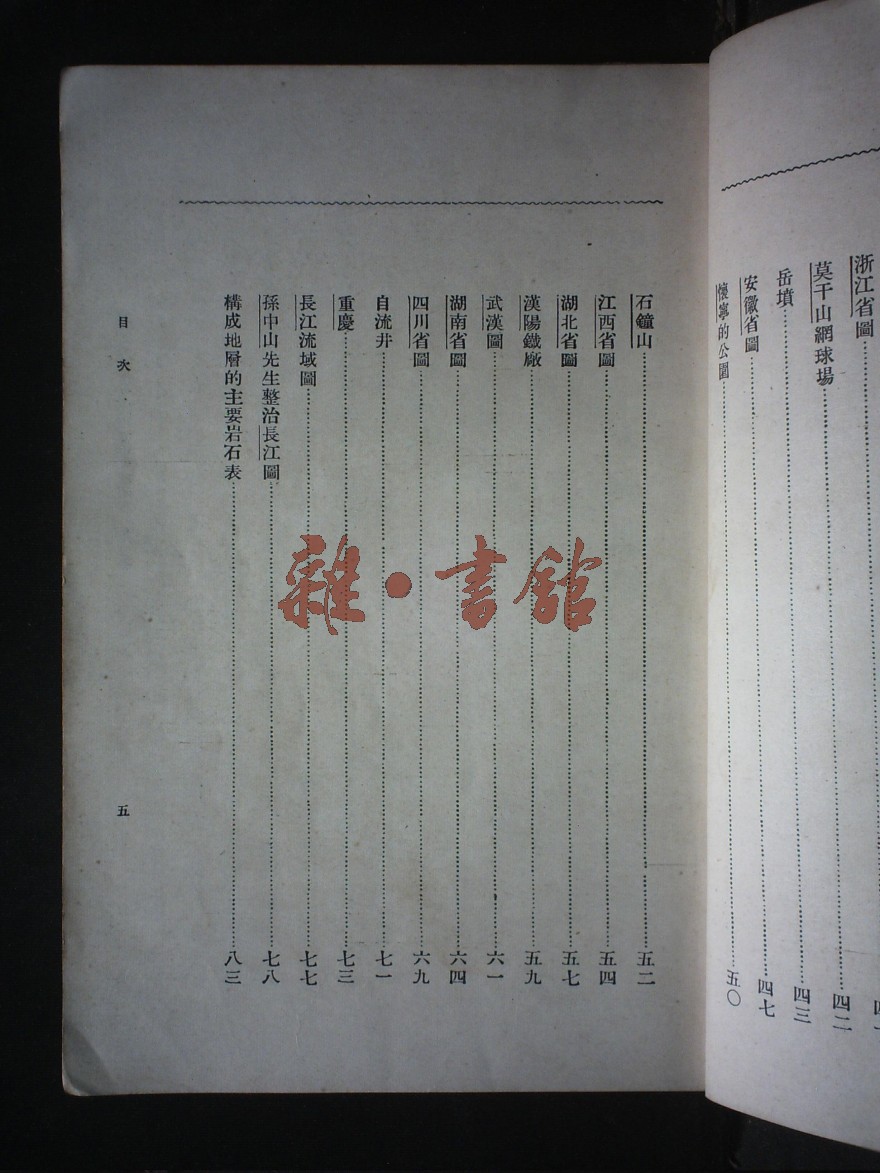 浙江省圖
莫干山網球場……四二
岳墳……四三
安徽省圖……四七
懷寧的公園……五〇
石鐘山……五二
江西省圖……五四
湖北省圖……五七
漢陽鐵廠……五九
武漢圖……六一
湖南省圖……六四
四川省圖……六九
自流井……七一
重慶……七三
長江流域圖……七七
孫中山先生整治長江圖……七八
構成地層的主要岩石表……八三
目次
五
雜·書館